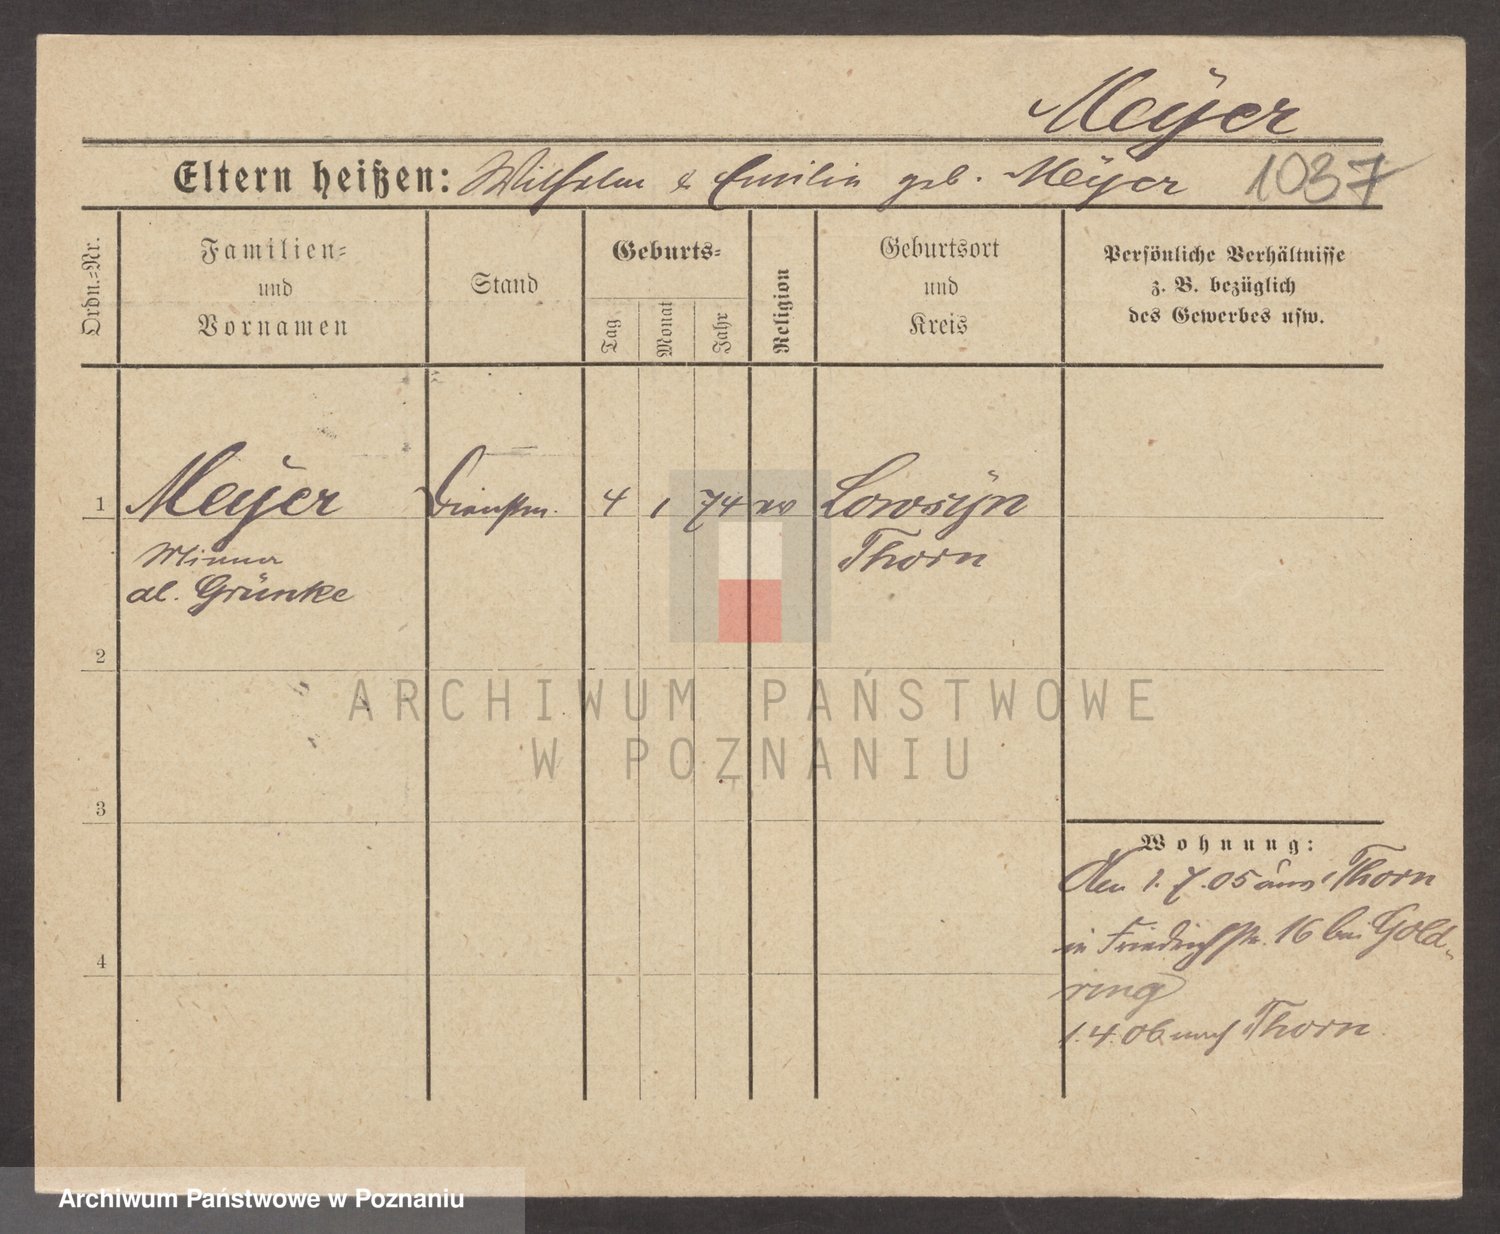 Meÿer
Eltern heißen: Wilhelm & Emilie geb. Meÿer 1037
Ordn.-Nr.
Familien-
und
Vornamen
Stand
Geburts-
Tag
Monat
Jahr
Religion
Geburtsort
und
Kreis
Persönliche Verhältnisse
z. B. bezüglich
des Gewerbes usw.
1 Meÿer Dienstm. 4 1 74 ev
Minna
al. Grünke
Thorn
2
3
4
Wohnung:
Den 1.7.05 aus Thorn
in Friedrichstr. 16 bei Gold-
ring
1.4.06 nach Thorn
ARCHIWUM PAŃSTWOWE
W POZNANIU
Archiwum Państwowe w Poznaniu